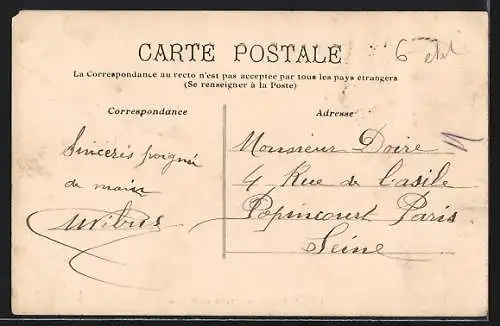 6
CARTE POSTALE
La Correspondance au recto n'est pas acceptée par tous les pays étrangers
(Se renseigner à la Poste)
Correspondance
Adresse
Sincères poignée
de main
Monsieur Doire
4 Rue de l'asile
Popincourt Paris
Seine